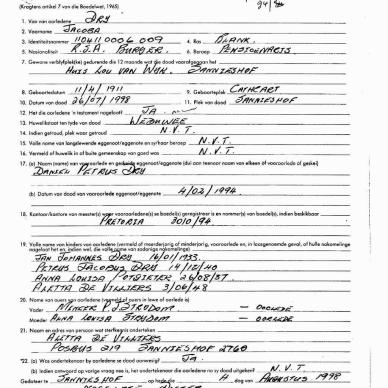 (Kragtens artikel 7 van die Boedelwet, 1965)
1. Van van oorledene DRY
2. Voorname JACOBA
3. Identiteitsnommer 110411 0006 009 4. Ras BLANK.
5. Nasionaliteit R.S.A. BURGER. 6. Beroep PENSIOENARIS
7. Gewone verblyfplek(ke) gedurende die 12 maande wat die dood voorafgegaan het
HUIS LOU VAN WYK, SANNIESHOF
8. Geboortedatum 11/4/1911 9. Geboorteplek CATHCART
10. Datum van dood 26/07/1998 11. Plek van dood SANNIESHOF
12. Het die oorledene 'n testament nagelaat? JA.
13. Huwelikstaat ten tyde van dood WEDUWEE
14. Indien getroud, plek waar getroud N.V.T.
15. Volle name van langslewende eggenoot/eggenote en sy/haar beroep N.V.T.
16. Vermeld of huwelik in of buite gemeenskap van goed was N.V.T.
17. (a) Naam (name) van vooroorlede en geskeide eggenoot/eggenote (dui aan teenoor naam van elkeen of vooroorlede of geskei)
DANIEL PETRUS DRY
(b) Datum van dood van vooroorlede eggenoot/eggenote 4/02/1994.
18. Kantoor/kantore van meester(s) waar vooroorledene(s) se boedel(s) geregistreer is en nommer(s) van boedel(s), indien beskikbaar
PRETORIA 30/0/94.
19. Volle name van kinders van oorledene (vermeld of meerderjarig of minderjarig, vooroorlede en, in laasgenoemde geval, of hulle nakomelinge
nagelaat het en, indien wel, die volle name van sodanige nakomelinge)
JAN JOHANNES DRY 16/01/1933.
PETRUS JACOBUS DRY 14/12/40
ANNA LOUISA POTGIETER 26/08/37.
ALETTA DE VILLIERS 3/06/48
20. Name van ouers van oorledene (vermeld of ouers in lewe of oorlede is)
Vader P.J. STRYDOM — OORLEDE
Moeder ANNA LOUISA STRYDOM — OORLEDE
21. Naam en adres van persoon wat sterfkennis onderteken
ALETTA DE VILLIERS
POSBUS 219 SANNIESHOF 2760
*22. (a) Was ondertekenaar by oorledene se dood aanwesig? JA.
N.V.T.
Gedateer te SANNIESHOF op hede die dag van AUGUSTUS 1998